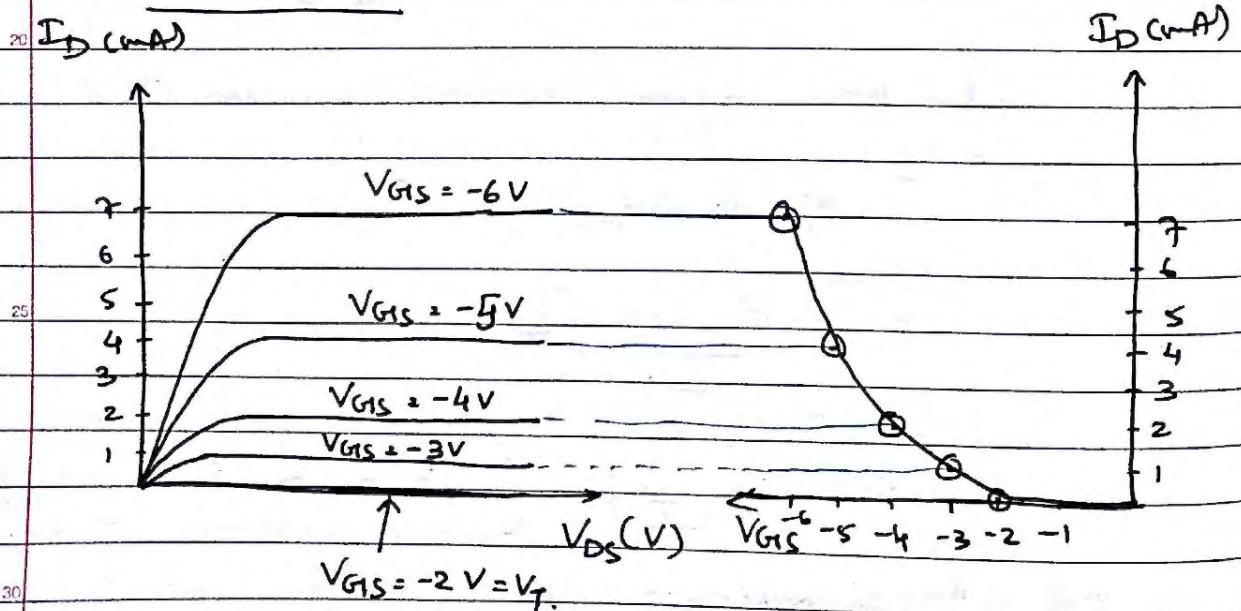 20
I_D (mA)
I_D (mA)
V_GS = -6 V
7
6
5
4
3
2
1
25
V_GS = -5 V
V_GS = -4 V
V_GS = -3 V
7
6
5
4
3
2
1
V_DS (V)
V_GS -6 -5 -4 -3 -2 -1
V_GS = -2 V = V_T.
30